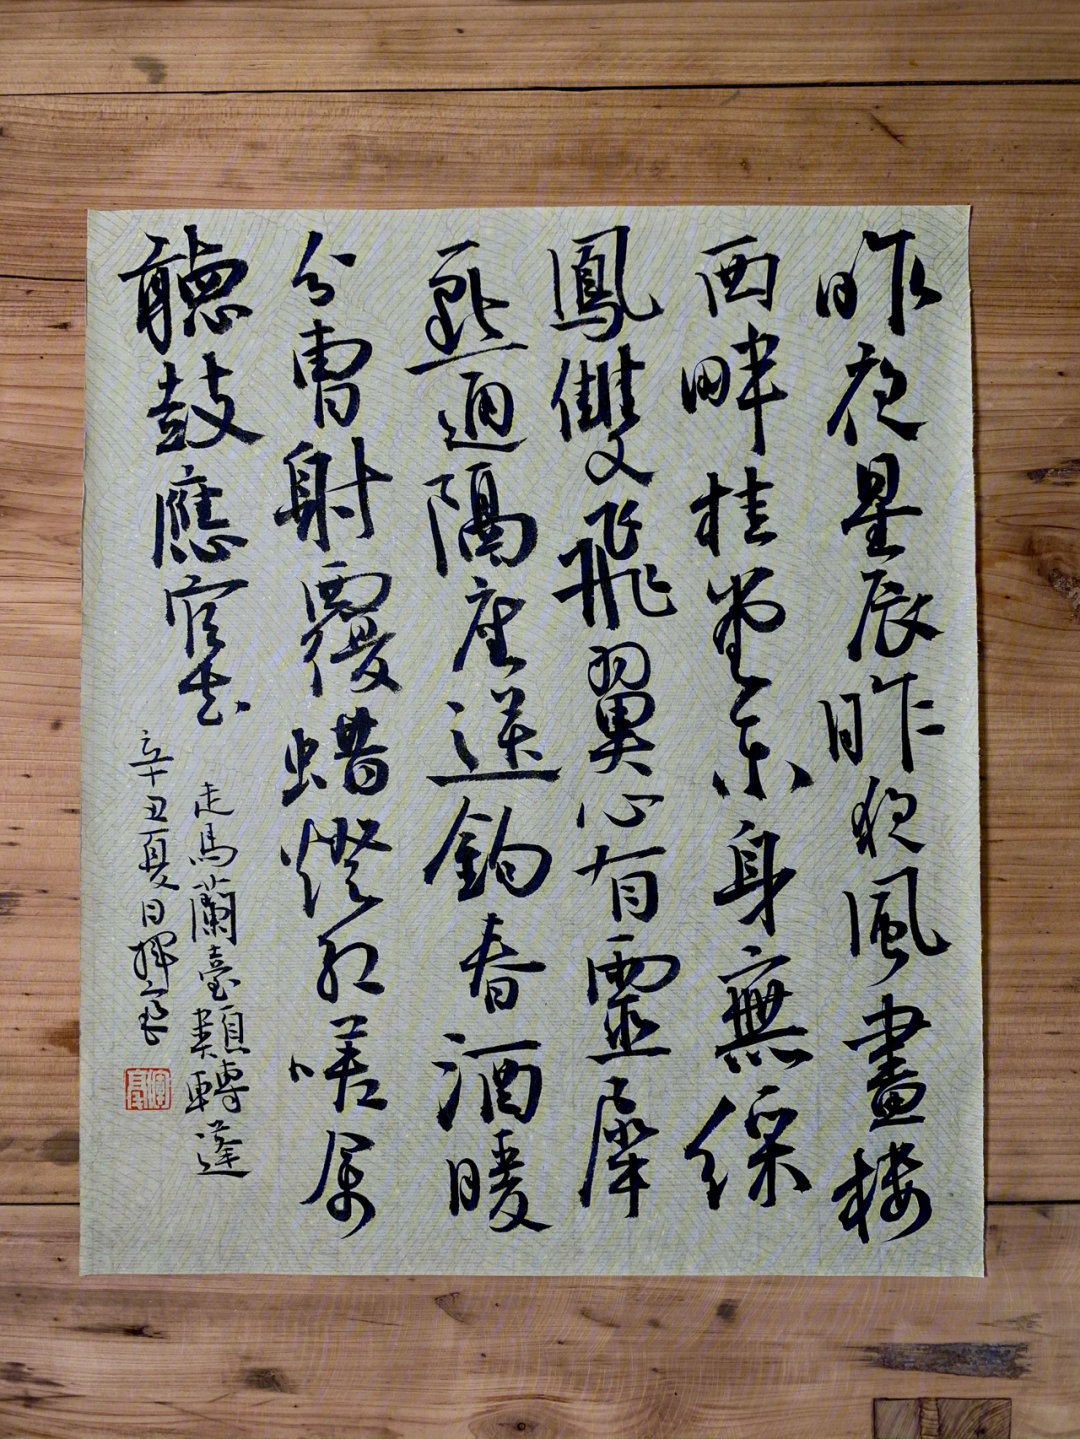 昨夜星辰昨夜風畫楼
西畔桂堂東身無綵
鳳雙飛翼心有靈犀
點通隔座送鈎春酒暖
分曹射覆蜡燈紅嗟余
聽鼓應官去
走馬蘭臺類轉蓬
辛丑夏日揮